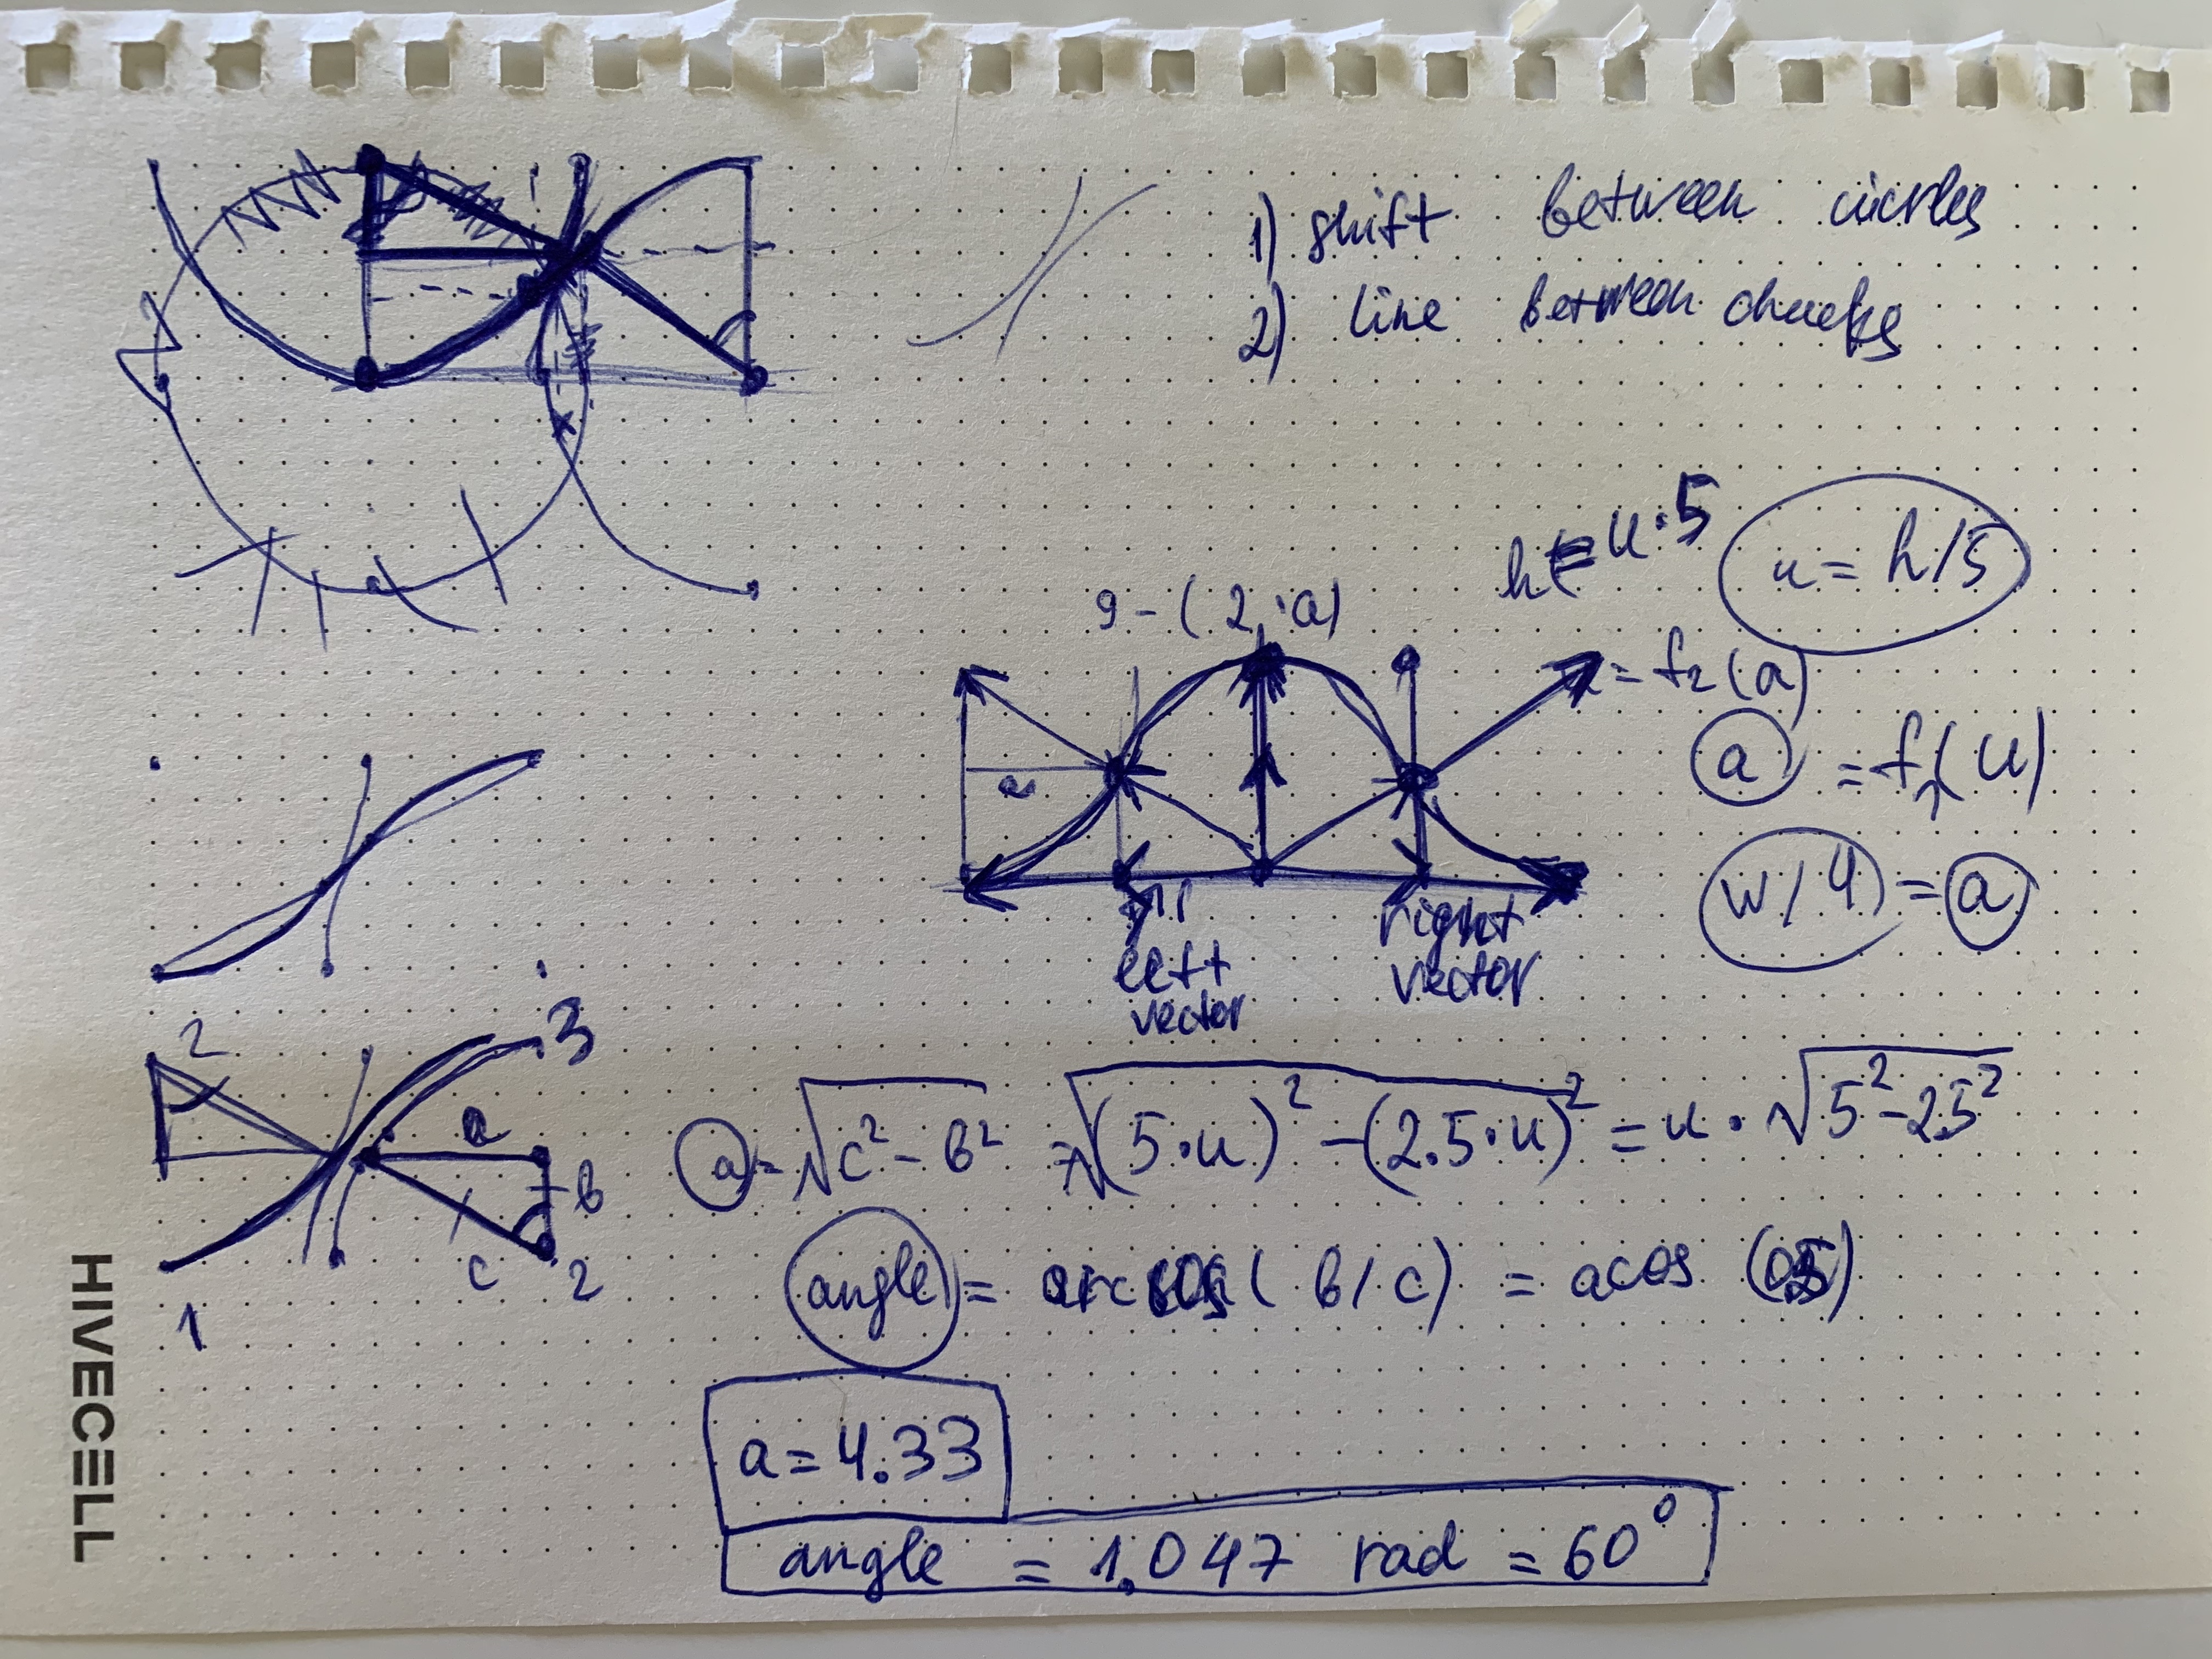 1) shift between cicrles
2) line between chunks
h = u·5
u = h/5
9 - (2·a)
= f2(a)
a = f1(u)
a
w/4 = a
left vector
right vector
2
3
a
b
c
2
1
a = √c² - b² = √(5·u)² - (2.5·u)² = u · √5² - 2.5²
angle = arccos (b/c) = acos (0.5)
a = 4.33
angle = 1,047 rad = 60°
HIVECELL